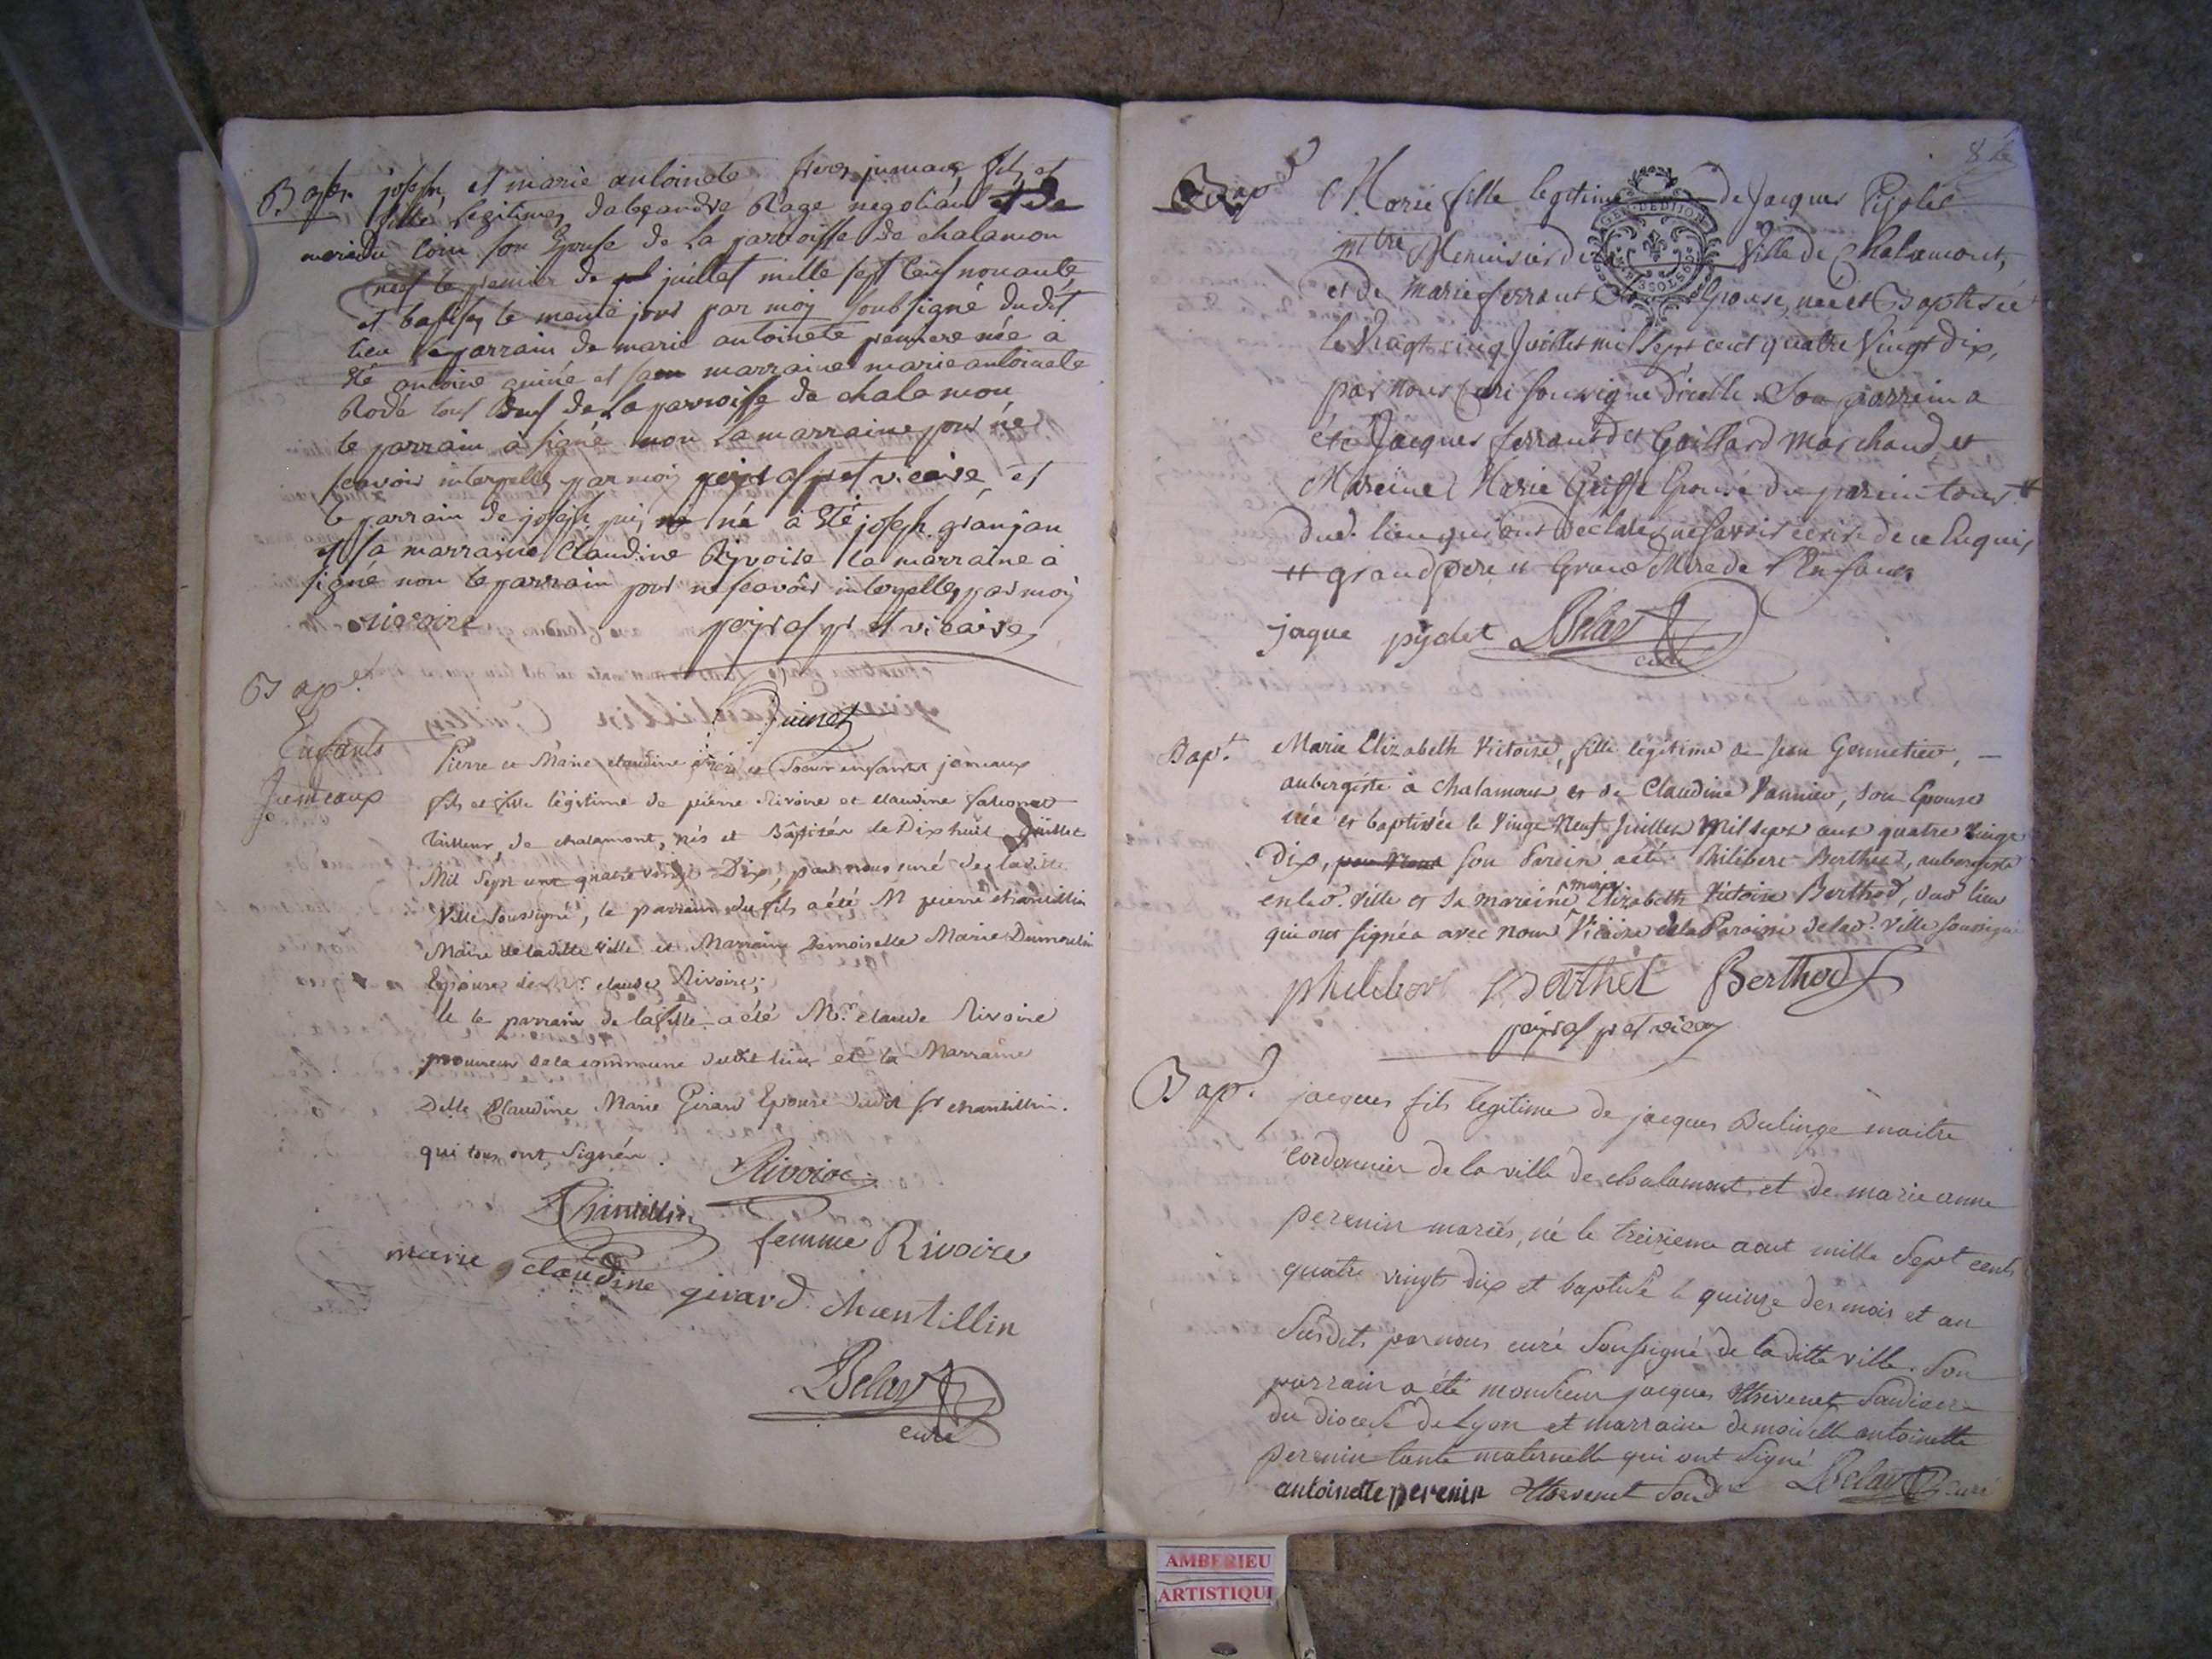 Bapt. joseph, et marie antoinete freres jumeaux fils et
fille legitimes dalexandre Rage negotiant et de
marie du Coin son Epouse de la parroisse de chalamon
nés le premier de juillet mille sept Cens nonante
et batisés le meme jour par moy soubsigné dudit
lieu le parrain de marie antoinete premiere née à
Eté antoine guiné et sa marraine marie antoinete
Rode tous Deux de la parroisse de chalamon
le parrain à signé non la marraine pour ne
scavoir interpellés par moy pr et vicaire et
le parrain de joseph puis né à Eté joseph granjan
et sa marraine Claudine Rivoire la marraine à
signé non le parrain pour ne scavoir interpellés par moy
rivoire pr et vicaire
Guinet
Bapt.
Enfants
Jumeaux
Pierre et Marie claudine frère et Soeur enfants jumeaux
fils et fille légitime de pierre Rivoire et claudine
tailleur de chalamont, nés et Bâptisés le Dix huit Juillet
Mil Sept cent quatre vingt Dix, par nous curé de ladite
Ville Soussigné, le parrain du fils a été M pierre chantillin
Maire de ladite ville et Marraine Demoiselle Marie Dumoulin
Epouse de Mr. claude Rivoire;
et le parrain de la fille a été Mr. claude Rivoire
procureur de la commune dudit lieu et la Marraine
Delle Claudine Marie Girard Epouse dudit Sr chantillin.
qui tous ont Signés.
Rivoire
Chantillin
femme Rivoire
marie claudine girard chantillin
curé
Bapt. Marie fille legitime de Jacques Pijolet
mtre Menuisier de la Ville de Chalamont,
et de marie ferrand Son Epouse, née et Baptisée
le Vingt cinq Juillet mil Sept cent quatre Vingt dix,
par nous Curé soussigné d'icelle. Son parrain a
été Jacques ferrand dt Gaillard marchand, et
Mareine Marie Griffe Epouse du parein tous
dud. lieu qui ont Declarés ne savoir ecrire de ce Enquis
grand pere et Grand Mere de l'Enfant
jaque pijolet
curé
Bapt. Marie Elizabeth Victoire, fille légitime de Jean Gonnetier,
aubergiste à chalamont et de Claudine Vannier, Son Epouse
née et baptisée le Vingt Neuf Juillet Mil sept cent quatre Vingt
Dix, par nous Son Parein a été Philibert Berthet, aubergiste
en lad. Ville et sa mareine marie Elizabeth Victoire Berthod, dud lieu
qui ont signés avec nous Vicaire de la Paroisse de lad. Ville soussigné
philibert Barthet Berthod
pr et vicair
Bapt. jacques fils legitime de jacques Bulinge maitre
cordonnier de la ville de chalamont et de marie anne
perenin mariés, né le treizieme aout mille Sept cents
quatre vingt dix et baptisé le quinze des mois et an
Susdits par nous curé Soussigné de la ditte ville. Son
parrain a été monsieur jacques thevenet Soudiacre
du diocese de Lyon et marraine demoiselle antoinette
perenin tante maternelle qui ont Signé
antoinette perenin thevenet Soudre curé
AMBERIEU
ARTISTIQUE